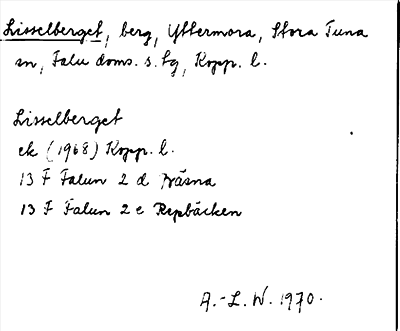 Lisselberget, berg, Yttermora, Stora Tuna
sn, Falu doms. s. tg, Kopp. l.
Lisselberget
ek (1968) Kopp. l.
13 F Falun 2 d Näsna
13 F Falun 2 e Repbäcken
A.-L. W. 1970.